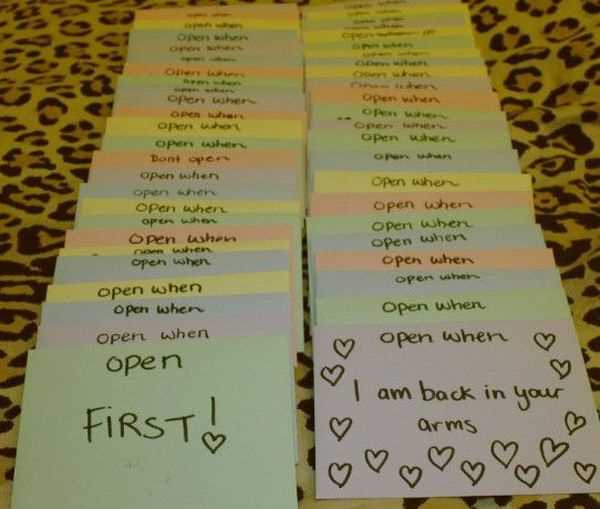 Open when
Open when
Open when
Open when
open when
Open when
Open when
open when
Open when
Open when
Open when
Open when
Dont open
Open when
open when
Open when
open when
Open when
Open when
Open when
open when
open when
Open when
open
FIRST!
Open when
Open when
Open when
Open when
Open when
Open when
Open when
Open when
Open when
Open when
Open when
Open when
Open when
Open when
Open when
Open when
Open when
Open when
Open when
open when
Open when
open when
Open when
Open when
I am back in your
arms